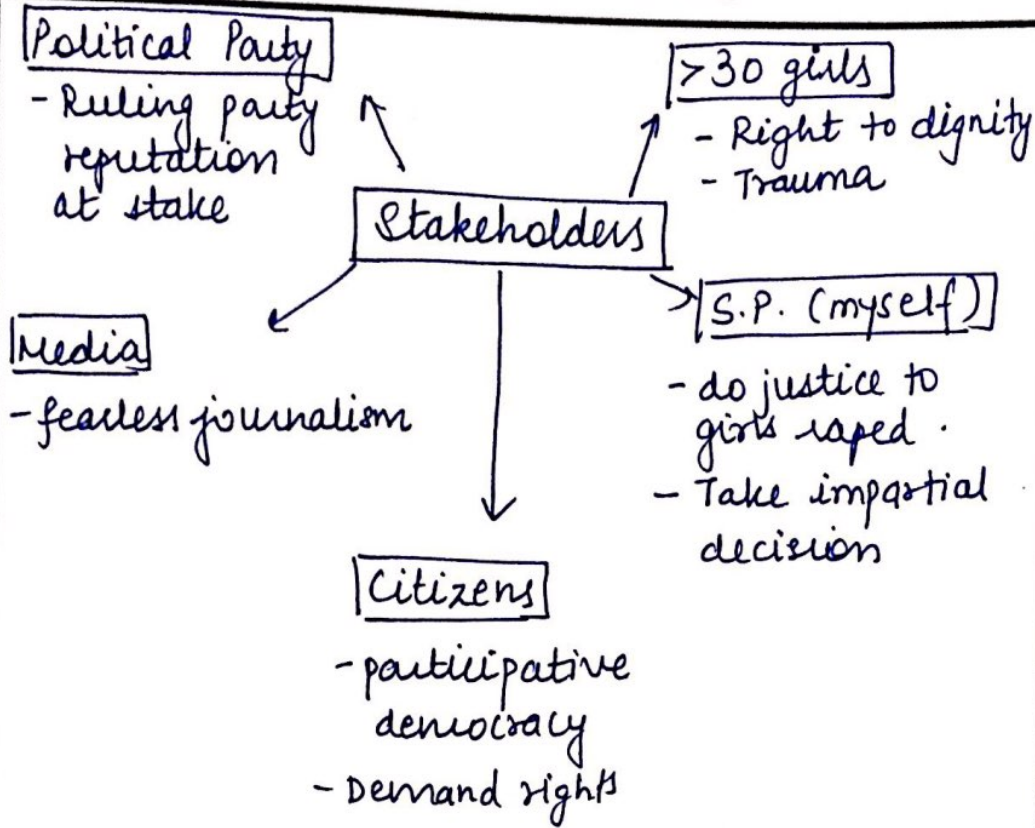 Political Party
- Ruling party
reputation
at stake
>30 girls
- Right to dignity
- Trauma
Stakeholders
Media
- fearless journalism
S.P. (myself)
- do justice to
girls raped.
- Take impartial
decision
Citizens
- participative
democracy
- Demand rights